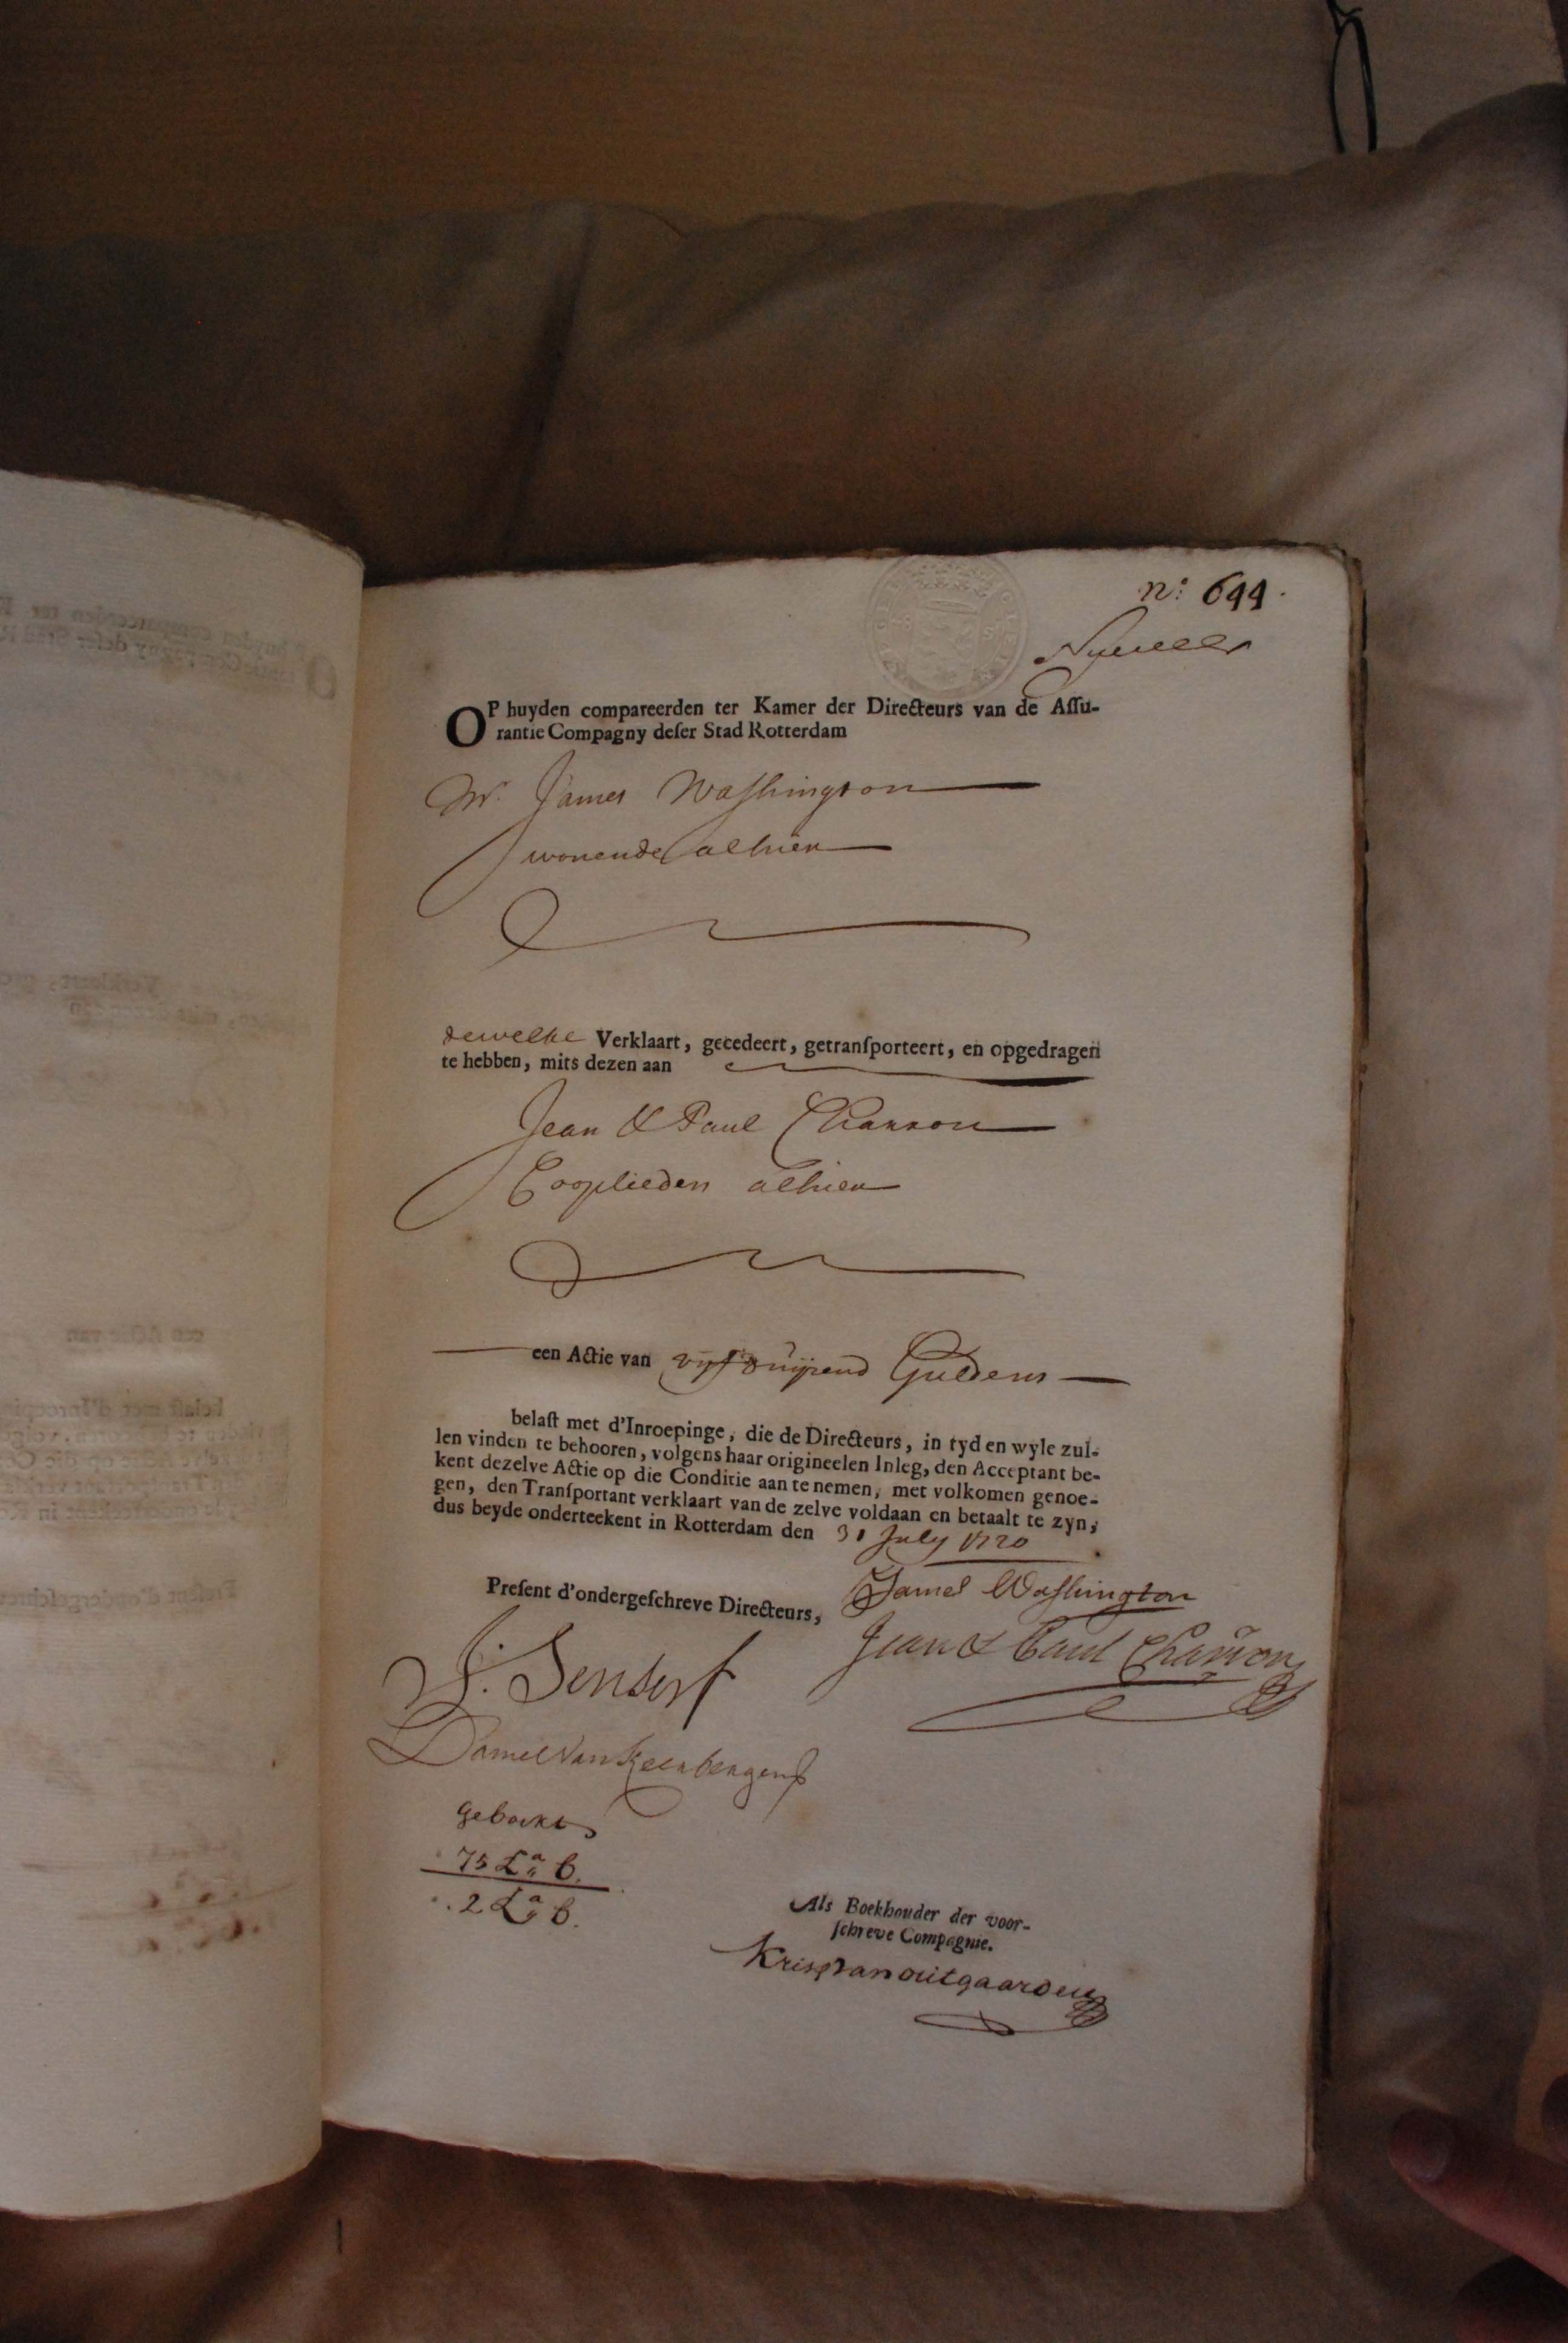 n: 644.
OP huyden compareerden ter Kamer der Directeurs van de Aſſu-
rantie Compagny deſer Stad Rotterdam
Mr. James Waſhington
wonende alhier
dewelke Verklaart, gecedeert, getranſporteert, en opgedragen
te hebben, mits dezen aan
Jean & Paul Chanson
Cooplieden alhier
een Actie van vijf duijsend Guldens
belaſt met d'Inroepinge, die de Directeurs, in tyd en wyle zul-
len vinden te behooren, volgens haar origineelen Inleg, den Acceptant be-
kent dezelve Actie op die Conditie aan te nemen, met volkomen genoe-
gen, den Tranſportant verklaart van de zelve voldaan en betaalt te zyn,
dus beyde onderteekent in Rotterdam den 31 July 1720
James Waſhington
Preſent d'ondergeſchreve Directeurs,
Jean & Paul Chanson
J. Senserf
Daniel Van
geboekt
75 La B.
2 La B.
Als Boekhouder der voor-
ſchreve Compagnie.
Kris van outgaarden